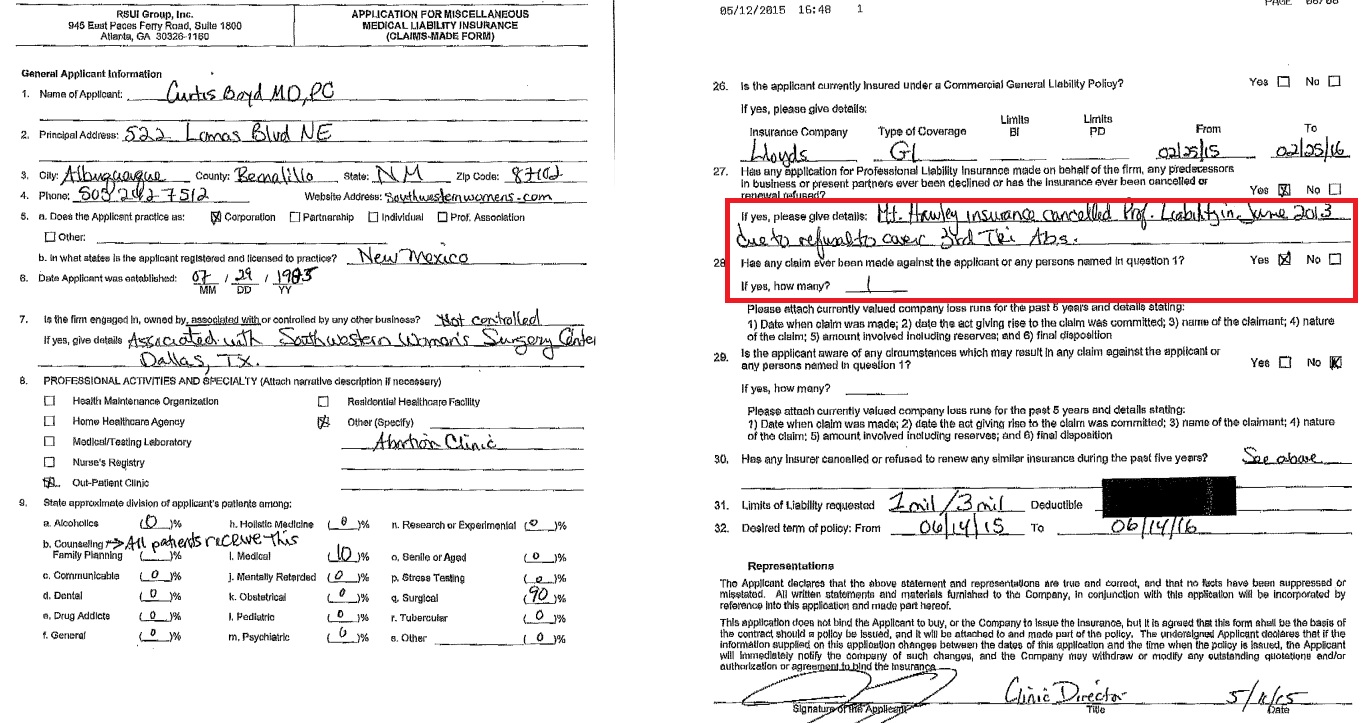 RSUI Group, Inc.
945 East Paces Ferry Road, Suite 1800
Atlanta, GA 30326-1160
APPLICATION FOR MISCELLANEOUS
MEDICAL LIABILITY INSURANCE
(CLAIMS-MADE FORM)
General Applicant Information
1. Name of Applicant: Curtis Boyd MD, PC
2. Principal Address: 522 Lomas Blvd NE
3. City: Albuquerque County: Bernalillo State: NM Zip Code: 87102
4. Phone: 505 242-7512 Website Address: Southwesternwomens.com
5. a. Does the Applicant practice as: Corporation Partnership Individual Prof. Association
Other:
b. In what states is the applicant registered and licensed to practice? New Mexico
6. Date Applicant was established: 07 / 29 / 1985
MM DD YY
7. Is the firm engaged in, owned by, associated with or controlled by any other business? Not controlled
If yes, give details Associated with Southwestern Women's Surgery Center
Dallas, TX.
8. PROFESSIONAL ACTIVITIES AND SPECIALTY (Attach narrative description if necessary)
Health Maintenance Organization Residential Healthcare Facility
Home Healthcare Agency Other (Specify)
Medical/Testing Laboratory Abortion Clinic
Nurse's Registry
Out-Patient Clinic
9. State approximate division of applicant's patients among:
a. Alcoholics (0)% h. Holistic Medicine (0)% n. Research or Experimental (0)%
b. Counseling → All patients receive this
Family Planning ( )% i. Medical (10)% o. Senile or Aged (0)%
c. Communicable (0)% j. Mentally Retarded (0)% p. Stress Testing (0)%
d. Dental (0)% k. Obstetrical (0)% q. Surgical (90)%
e. Drug Addicts (0)% l. Pediatric (0)% r. Tubercular (0)%
f. General (0)% m. Psychiatric (0)% s. Other (0)%
05/12/2015 16:48 1
PAGE 06/06
26. Is the applicant currently insured under a Commercial General Liability Policy? Yes No
If yes, please give details:
Insurance Company Type of Coverage Limits BI Limits PD From To
Lloyds GL 02/25/15 02/25/16
27. Has any application for Professional Liability Insurance made on behalf of the firm, any predecessors
in business or present partners ever been declined or has the insurance ever been cancelled or
renewal refused? Yes No
If yes, please give details: Mt. Hawley insurance cancelled Prof. Liability in June 2013
due to refusal to cover 3rd Tri Abs.
28 Has any claim ever been made against the applicant or any persons named in question 1? Yes No
If yes, how many? 1
Please attach currently valued company loss runs for the past 5 years and details stating:
1) Date when claim was made; 2) date the act giving rise to the claim was committed; 3) name of the claimant; 4) nature
of the claim; 5) amount involved including reserves; and 6) final disposition
29. Is the applicant aware of any circumstances which may result in any claim against the applicant or
any persons named in question 1? Yes No
If yes, how many?
Please attach currently valued company loss runs for the past 5 years and details stating:
1) Date when claim was made; 2) date the act giving rise to the claim was committed; 3) name of the claimant; 4) nature
of the claim; 5) amount involved including reserves; and 6) final disposition
30. Has any insurer cancelled or refused to renew any similar insurance during the past five years? See above
31. Limits of Liability requested 1mil/3mil Deductible
32. Desired term of policy: From 06/14/15 To 06/14/16
Representations
The Applicant declares that the above statement and representations are true and correct, and that no facts have been suppressed or
misstated. All written statements and materials furnished to the Company, in conjunction with this application will be incorporated by
reference into this application and made part hereof.
This application does not bind the Applicant to buy, or the Company to issue the insurance, but it is agreed that this form shall be the basis of
the contract should a policy be issued, and it will be attached to and made part of the policy. The undersigned Applicant declares that if the
information supplied on this application changes between the dates of this application and the time when the policy is issued, the Applicant
will immediately notify the company of such changes, and the Company may withdraw or modify any outstanding quotations and/or
authorization or agreement to bind the insurance.
Clinic Director
Signature of the Applicant Title Date